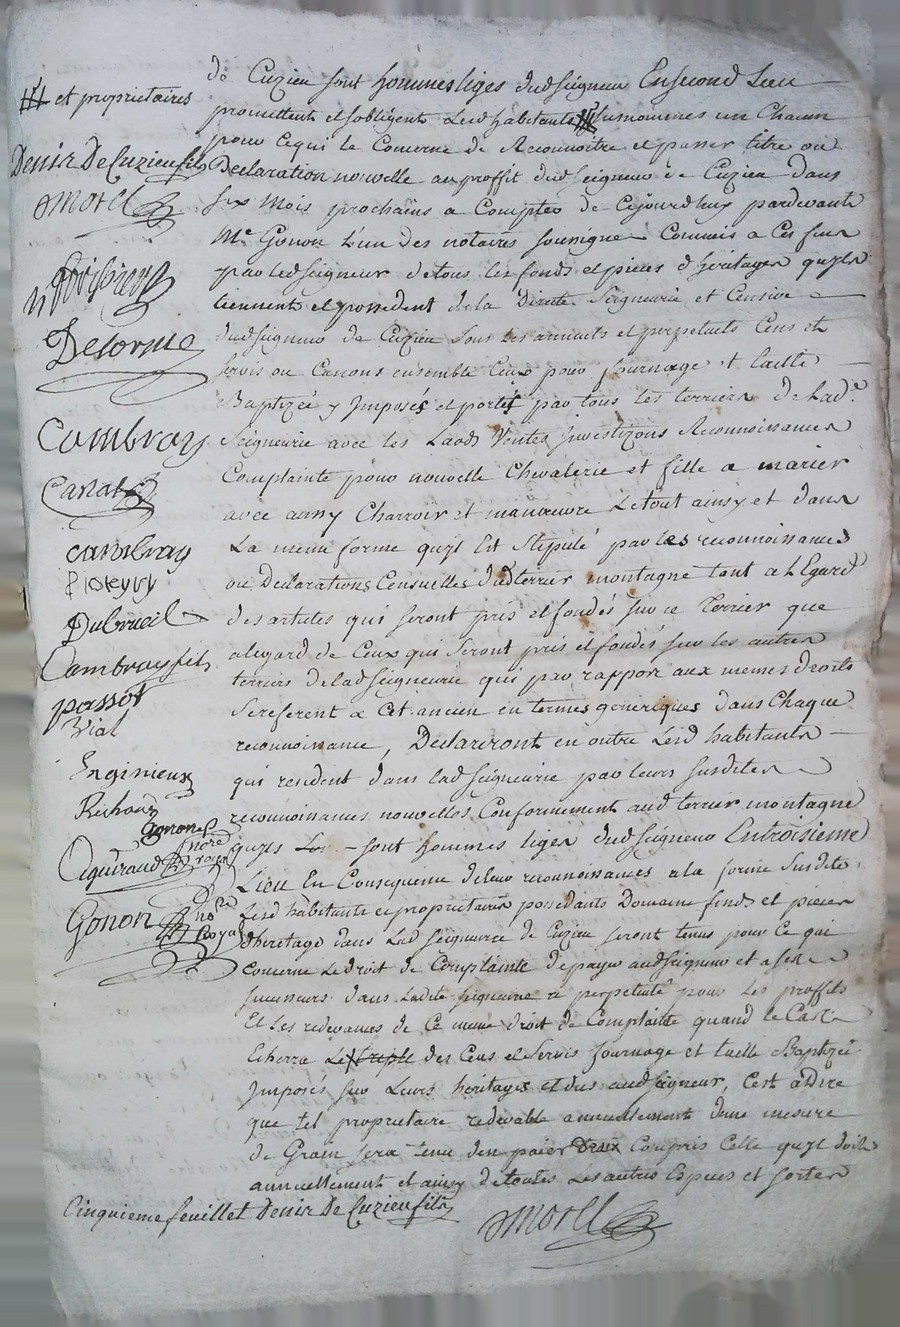 # et proprietaires
Denis De Cuzieu fils
Morel
Delorme
Cambray
Canat
Cambray
Ploteyvy
Dubrueil
Cambray fils
passot
Vial
Enginieux
Richard
Gonon nore royal
Aguiraud
Gonon nore Royal
de Cuzieu sont hommes liges dud seigneur En second Lieu
promettent et sobligent Lesd habitants # susnommes un Chacun
pour Cequi le Concerne de Reconnoitre et passer titre ou
Declaration nouvelle au proffit dud seigneur de Cuzieu dans
six Mois prochains a Compter de Cejourdhuy pardevant
Me Gonon L'un des notaires soussignes Commis a Ces fins
par led seigneur de tous les fonds et pieces d heritages quyls
tiennent et possedent de la Directe Seigneurie et Censive
dud seigneur de Cuzieu sous les annuels et perpetuels Cens et
servis ou Canons ensemble Ceux pour fournage et taille
Baptizée y Imposés et portés par tous les terriers de Lade
Seigneurie avec les Laods Ventes Investizons Reconnoissances
Complainte pour nouvelle Chevalerie et fille a marier
avec aussy Charroir et manoeuvre Le tout ainsy et dans
La meme forme quyl Est Stipulé par les reconnoissances
ou Declarations Censuelles dud terrier montagne tant a L Egard
des articles qui seront pris et fondés sur ce Terrier que
alegard de Ceux qui seront pris et fondés sur les autres
terriers de lad seigneurie qui par rapport aux memes droits
se referent a Cet ancien en termes generiques dans Chaque
reconnoissance, Declareront en outre Lesd habitants
qui resident dans lad seigneurie par leurs susdites
reconnoissances nouvelles Conformement aud terrier montagne
quyls sont hommes liges dud seigneur En troisieme
Lieu En Consequence de leur reconnoissances a la forme Susdite
Lesd habitants et proprietaires possedants Domaine fonds et pieces
dheritage dans Lad seigneurie de Cuzieu seront tenus pour Ce qui
Concerne Le droit de Complainte de payer aud seigneur et a ses
successeurs dans Ladite seigneurie a perpetuité pour Les proffits
Et Les redevances de Ce meme droit de Complainte quand le Cas
Echerra Le triple des Cens et Servis fournage et taille Baptizée
Imposés sur Leurs héritages et dus aud seigneur, Cest aDire
que tel proprietaire redevable annuellement dune mesure
de Grain sera tenu den païer deux Compris Celle quyl doit
annuellement et ainsy de toutes Les autres Especes et sortes
Cinquieme feuillet Denis De Cuzieu fils
Morel